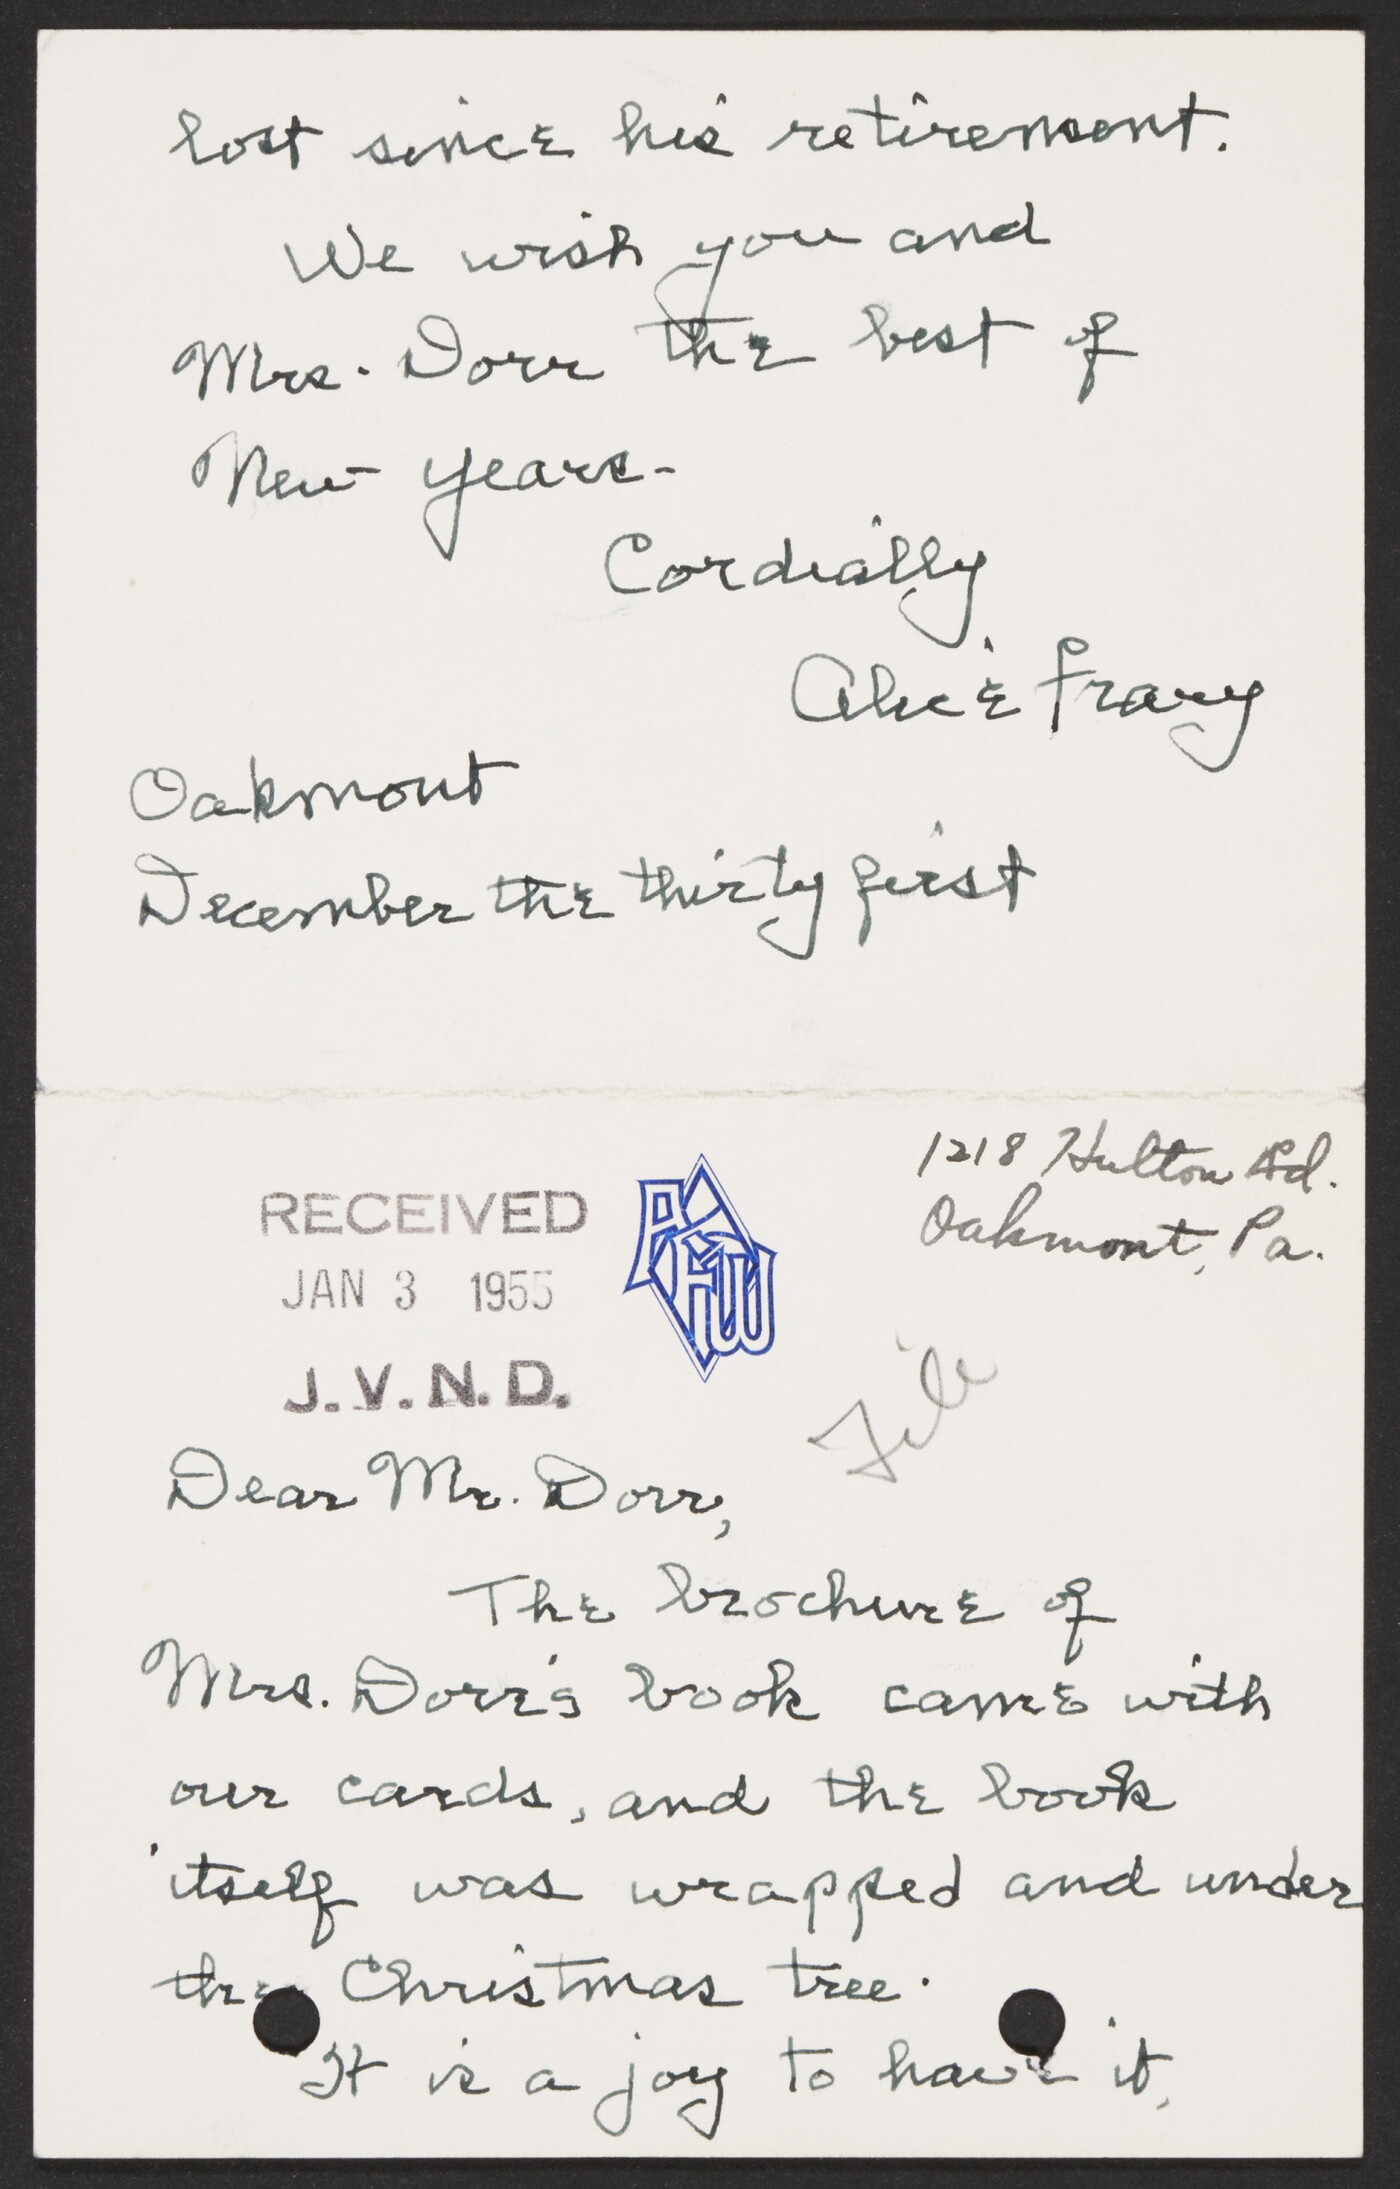 lost since his retirement.
We wish you and
Mrs. Dorr the best of
New Years-
Cordially
Alice Frary
Oakmont
December the thirty first
1218 Hulton Rd.
Oakmont, Pa.
RECEIVED
JAN 3 1955
J.V.N.D.
File
Dear Mr. Dorr,
The brochure of
Mrs. Dorr's book came with
our cards, and the book
itself was wrapped and under
the Christmas tree.
It is a joy to have it,